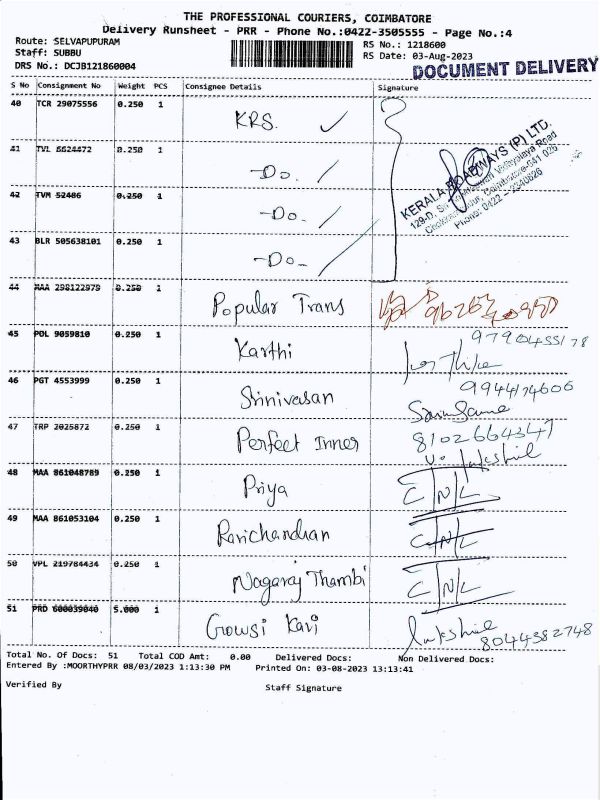 THE PROFESSIONAL COURIERS, COIMBATORE
Delivery Runsheet - PRR - Phone No.:0422-3505555 - Page No.:4
Route: SELVAPUPURAM
Staff: SUBBU
DRS No.: DCJB121860004
RS No.: 1218600
RS Date: 03-Aug-2023
DOCUMENT DELIVERY
S No Consignment No Weight PCS Consignee Details Signature
40 TCR 29075556 0.250 1 KRS.
41 TVL 6624472 0.250 1 -Do.
42 TVM 52486 0.250 1 -Do.
43 BLR 505638101 0.250 1 -Do-
KERALA ROADWAYS (P) LTD.
44 MAA 298122979 0.250 1 Popular Trans
45 POL 9059810 0.250 1 Karthi 9790455178
46 PGT 4553999 0.250 1 Srinivasan 9944174606
47 TRP 2025872 0.250 1 Perfect Inner 8102664347
48 MAA 861048789 0.250 1 Priya C/N/L
49 MAA 861053104 0.250 1 Ravichandran C/N/L
50 VPL 219784434 0.250 1 Nagaraj Thambi C/N/L
51 PRD 600039040 5.000 1 Gowsi Kavi 8044382748
Total No. Of Docs: 51 Total COD Amt: 0.00 Delivered Docs: Non Delivered Docs:
Entered By :MOORTHYPRR 08/03/2023 1:13:30 PM Printed On: 03-08-2023 13:13:41
Verified By Staff Signature